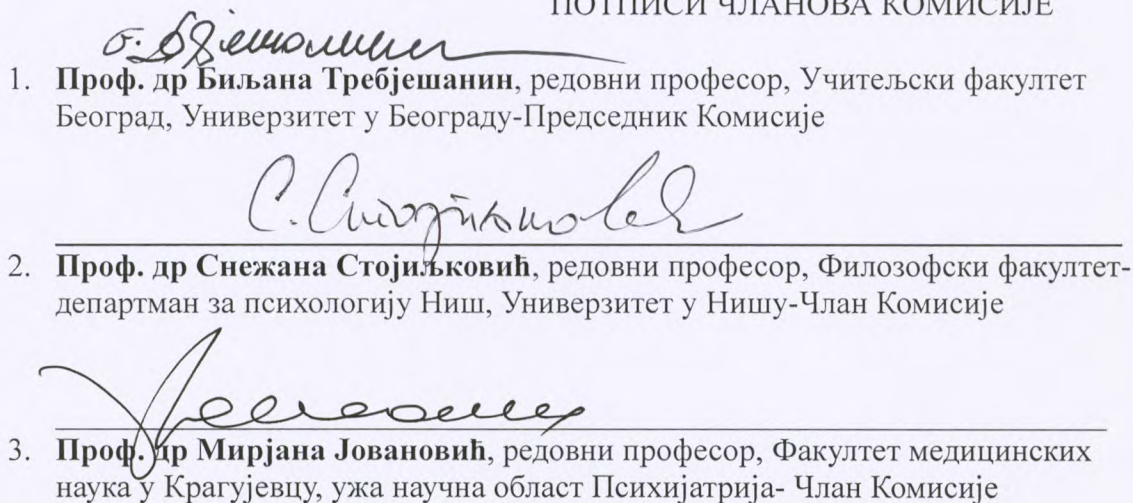 ПОТПИСИ ЧЛАНОВА КОМИСИЈЕ
1. Проф. др Биљана Требјешанин, редовни професор, Учитељски факултет
Београд, Универзитет у Београду-Председник Комисије
С. Стојиљковић
2. Проф. др Снежана Стојиљковић, редовни професор, Филозофски факултет-
департман за психологију Ниш, Универзитет у Нишу-Члан Комисије
3. Проф. др Мирјана Јовановић, редовни професор, Факултет медицинских
наука у Крагујевцу, ужа научна област Психијатрија- Члан Комисије